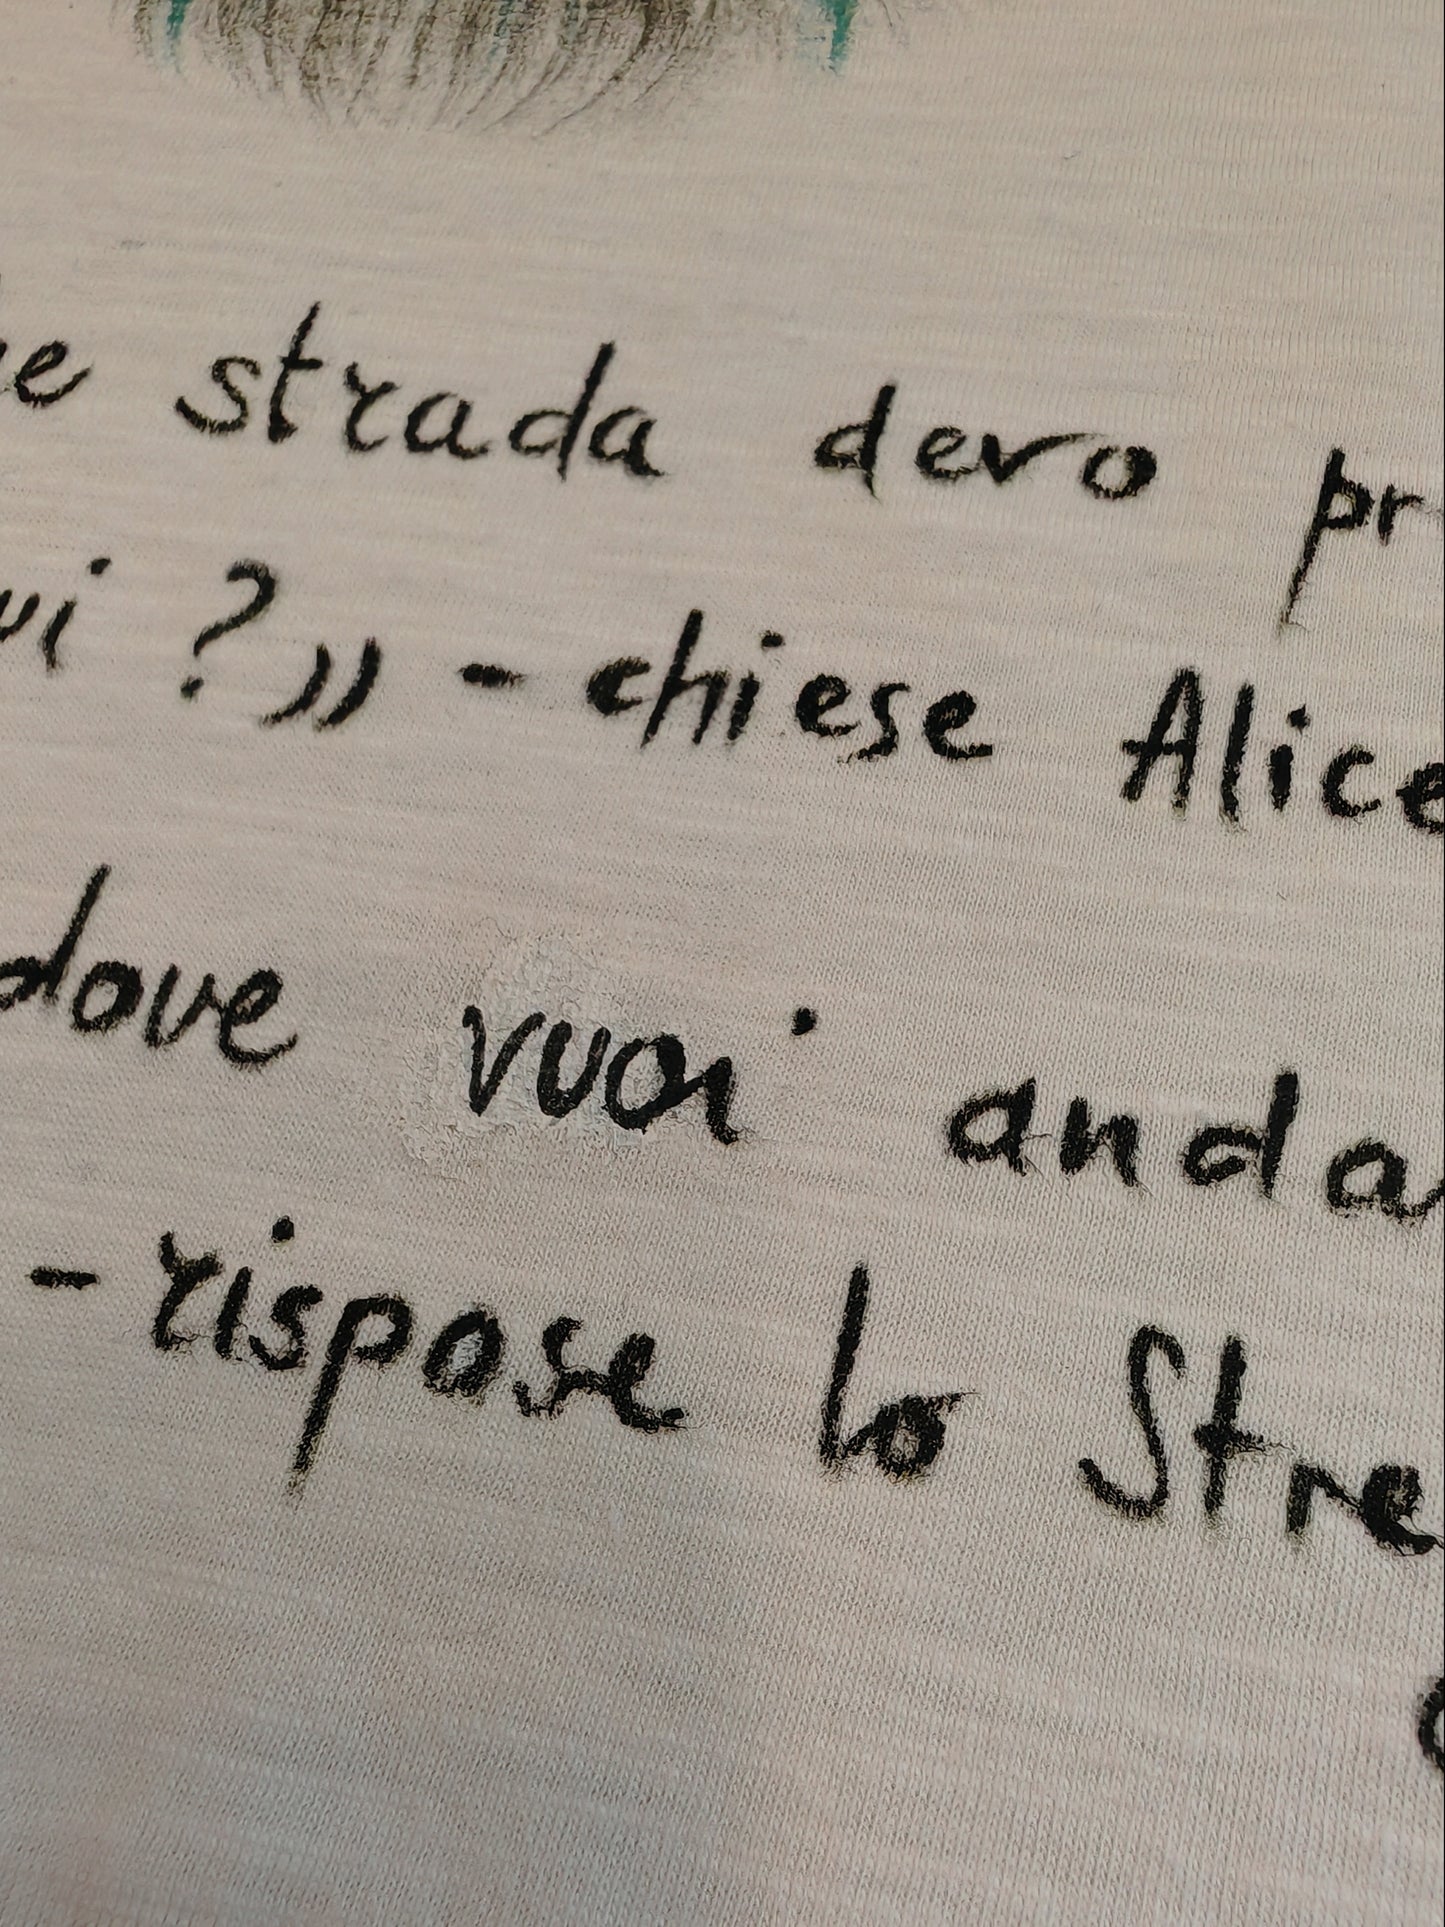 e strada devo pr
ui ?» - chiese Alice
dove vuoi anda
- rispose lo Stre